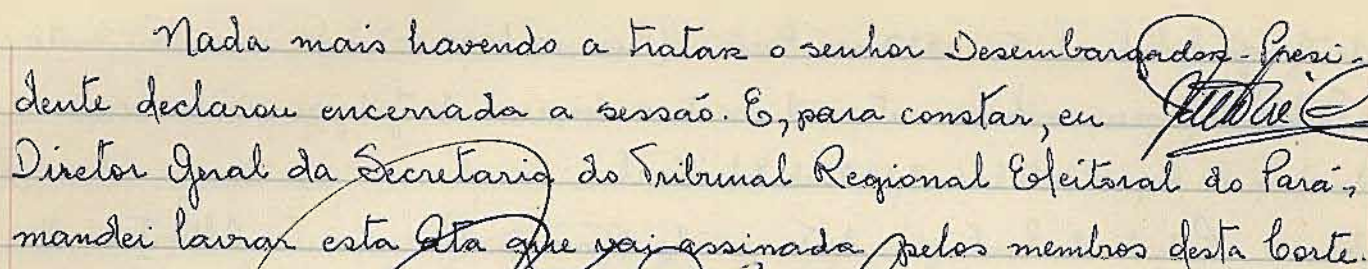 Nada mais havendo a tratar o senhor Desembargador-Presi-
dente declarou encerrada a sessão. E, para constar, eu
Diretor Geral da Secretaria do Tribunal Regional Eleitoral do Pará,
mandei lavrar esta Ata que vai assinada pelos membros desta Corte.